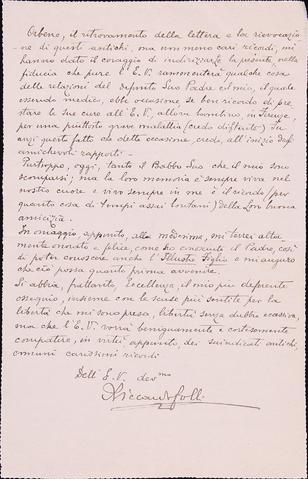 Orbene, il ritrovamento della lettera e la rievocazio-
ne di questi antichi, ma non meno cari ricordi, mi
hanno dato il coraggio di indirizzarLe la presente, nella
fiducia che pure l'E.V. rammenterà qualche cosa
delle relazioni del defunto Suo Padre col mio, il quale
essendo medico, ebbe occasione, se ben ricordo, di pre-
stare le sue cure all'E.V. allora bambino in Firenze,
per una piuttosto grave malattia (credo difterite). In-
anzi questo fatto che dette occasione, credo, all'inizio degli
amichevoli rapporti -
Purtroppo, oggi, tanto il Babbo Suo che il mio sono
scomparsi; ma la loro memoria è sempre viva nel
nostro cuore e vivo sempre in me è il ricordo (per
quanto cosa di tempi assai lontani) della Loro buona
amicizia.
In omaggio, appunto, alla medesima, mi terrei alta-
mente onorato e felice, come ho conosciuto il Padre, così
di poter conoscere anche l'Illustre Figlio e mi auguro
che ciò possa quanto prima avvenire.
Si abbia, frattanto, Eccellenza, il mio più deferente
ossequio, insieme con le scuse più sentite per la
libertà che mi sono presa, libertà senza dubbio eccessiva,
ma che l'E.V. vorrà benignamente e cortesemente
compatire, in virtù appunto, dei suindicati antichi,
comuni carissimi ricordi
Dell'E.V. dev.mo